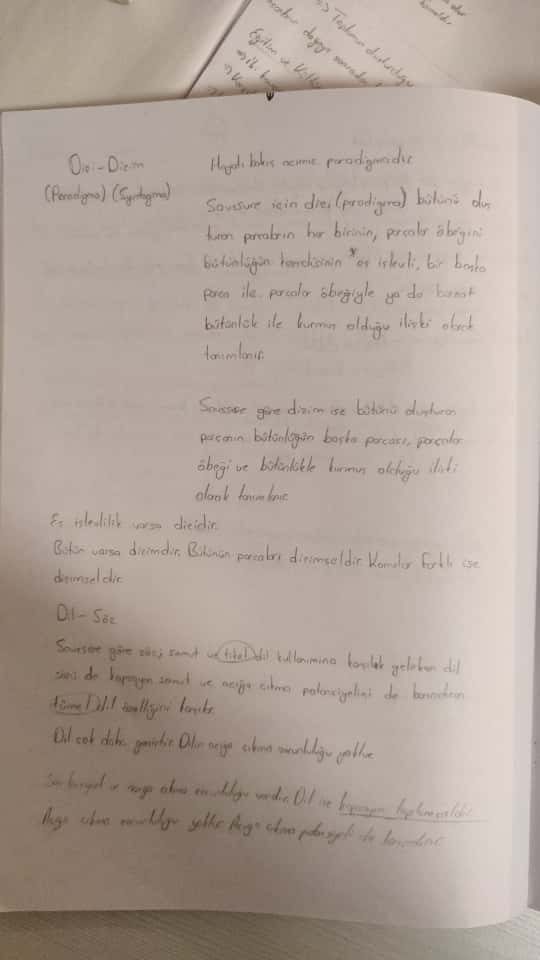 Toplumun oluşturduğu
Eğitim ve Kültür
Dizi - Dizim
(Paradigma) (Syntagma)
Hayata bakış açımız paradigmadır.
Saussure için dizi (paradigma) bütünü oluş
turan parçaların her birinin, parçalar öbeğinin
bütünlüğün kendisinin *eş işlevli, bir başka
parça ile parçalar öbeğiyle ya da
bütünlük ile kurmuş olduğu ilişki olarak
tanımlanır.
Saussure göre dizim ise bütünü oluşturan
parçanın bütünlüğün başka parçası, parçalar
öbeği ve bütünlükle kurmuş olduğu ilişki
olarak tanımlanır.
Eş işlevlilik varsa dizidir.
Bütün varsa dizimdir. Bütünün parçaları dizimseldir. Konular farklı ise
dizimseldir.
Dil - Söz
Saussure göre söz; somut ve tikel dil kullanımına karşılık gelirken dil
sözü de kapsayan soyut ve açığa çıkma potansiyelini de barındıran
tümel dil özelliğini taşır.
Dil çok daha geniştir. Dilin açığa çıkma zorunluluğu yoktur.
Söz bireysel ve açığa çıkma zorunluluğu vardır. Dil ise kapsayan toplumsaldır.
Açığa çıkma zorunluluğu yoktur. Açığa çıkma potansiyeli de barındırır.